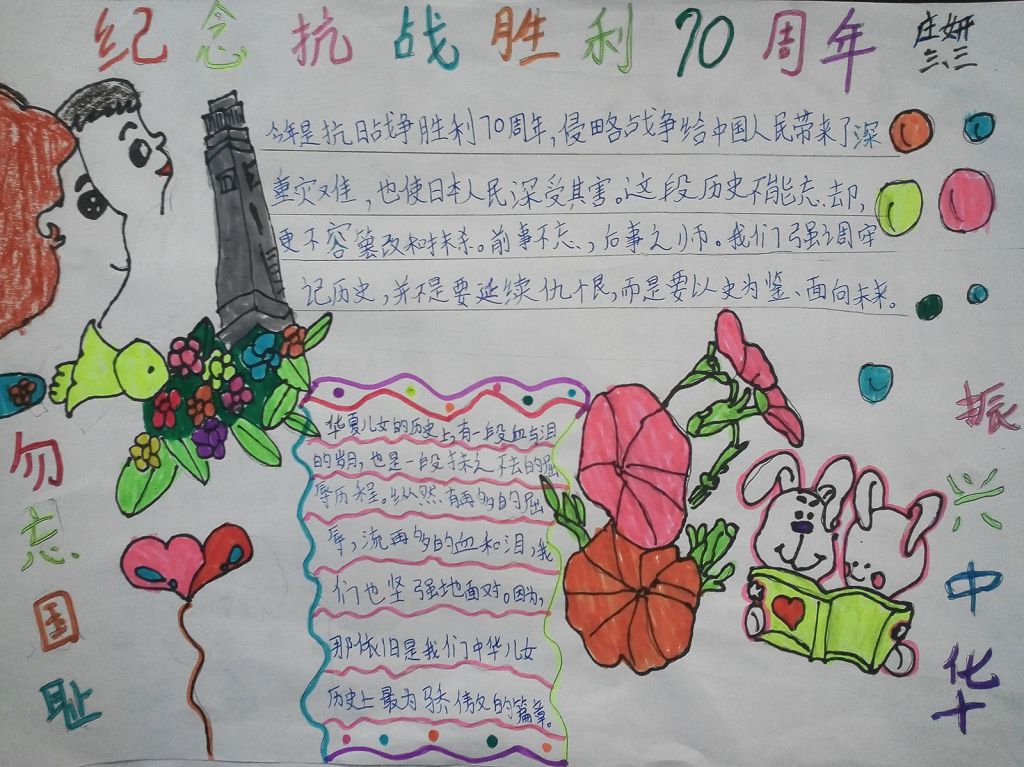 纪念抗战胜利70周年
庄妍
三、三
今年是抗日战争胜利70周年,侵略战争给中国人民带来了深
重灾难,也使日本人民深受其害。这段历史不能忘却,
更不容篡改和抹杀。前事不忘,后事之师。我们强调牢
记历史,并不是要延续仇恨,而是要以史为鉴、面向未来。
华夏儿女的历史上,有一段血与泪
的岁月,也是一段抹之不去的屈
辱历程。纵然有再多的屈
辱,流再多的血和泪,我
们也坚强地面对。因为,
那依旧是我们中华儿女
历史上最为骄傲的篇章。
勿忘国耻
振兴中华